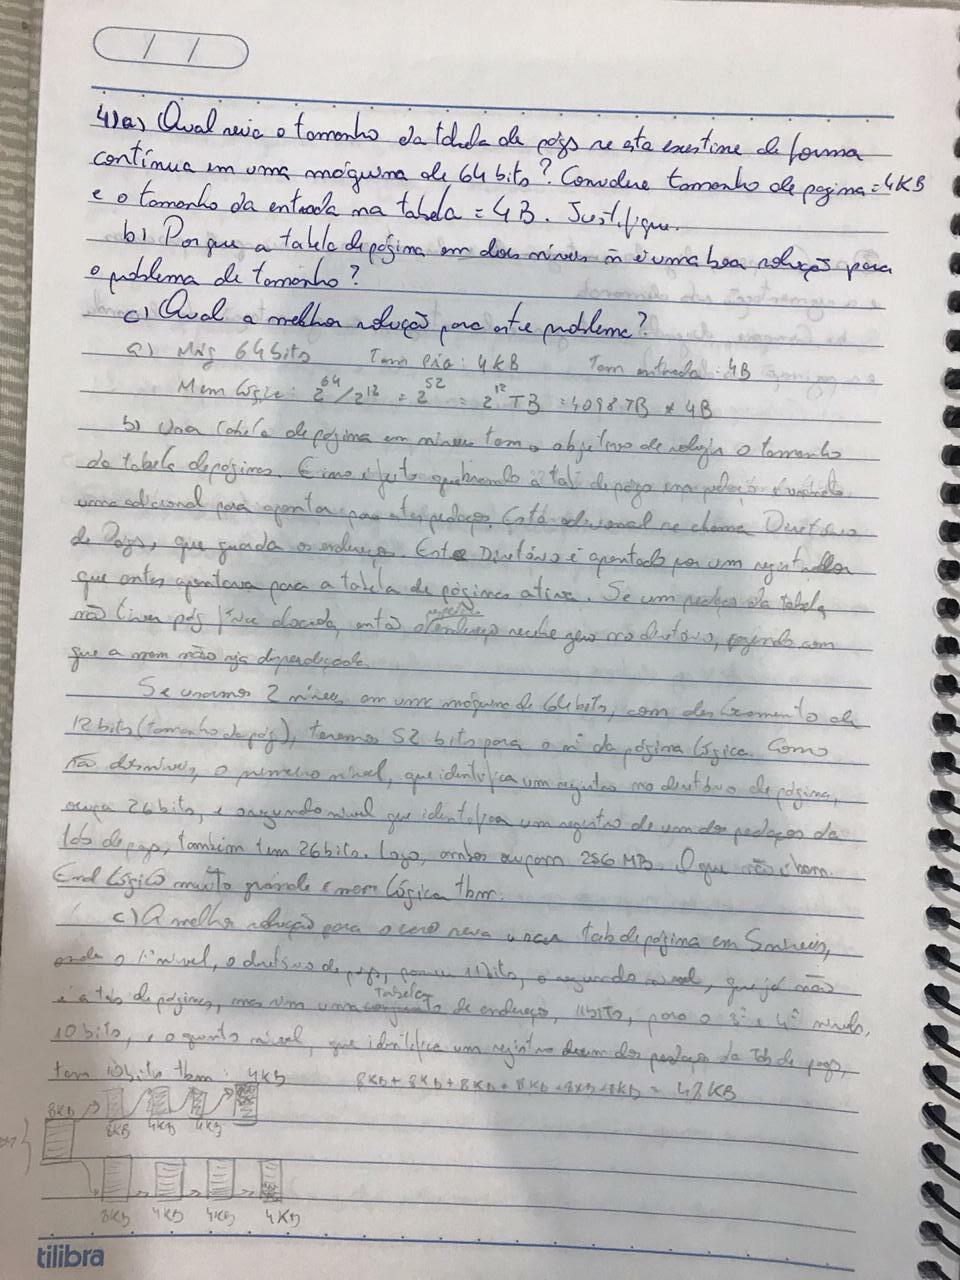 4)a) Qual seria o tamanho da tabela de págs se esta existisse de forma
contínua em uma máquina de 64 bits? Considere tamanho de página = 4KB
e o tamanho da entrada na tabela = 4B. Justifique.
b) Por que a tabela de página em dois níveis ñ é uma boa solução para
o problema de tamanho?
c) Qual a melhor solução para este problema?
a) Máq 64 bits Tam Pág: 4KB Tam entrada: 4B
Mem Lógica: 2^64/2^12 = 2^52 = 2^12 TB = 4098 TB * 4B
b) Uma tabela de página em níveis tem o objetivo de reduzir o tamanho
da tabela de páginas. E isso é feito quebrando a tab de págs em pedaços
uma adicional para apontar para estes pedaços. Está adicional se chama Diretório
de Págs, que guarda os endereços. Este Diretório é apontado por um registrador
que antes apontava para a tabela de páginas ativa. Se um pedaço da tabela
não tiver pág alocada, então o endereço recebe zero no diretório, fazendo com
que a mem não seja desperdiçada.
Se usarmos 2 níveis em uma máquina de 64 bits, com deslocamento de
12 bits (tamanho da pág), teremos 52 bits para o nº da página lógica. Como
são dois níveis, o primeiro nível, que identifica um registro no diretório de página,
ocupa 26 bits, e o segundo nível que identifica um registro de um dos pedaços da
tab de págs, também tem 26 bits. Logo, ambos ocupam 256 MB. O que não é bom.
End Lógico muito grande e mem lógica tbm.
c) A melhor solução para o caso seria usar tab de página em 5 níveis,
onde o 1º nível, o diretório de págs, possui 11 bits, o segundo nível, que já não
é a tab de páginas, mas sim uma tabela de endereço, 11 bits, para o 3º e 4º níveis,
10 bits, e o quinto nível, que identifica um registro de um dos pedaços da Tab de págs,
tem 10 bits tbm: 4KB 8KB + 8KB + 8KB + 8KB + 8KB + 8KB = 48KB
8KB
8KB 4KB 4KB
8KB 4KB 4KB 4KB
tilibra